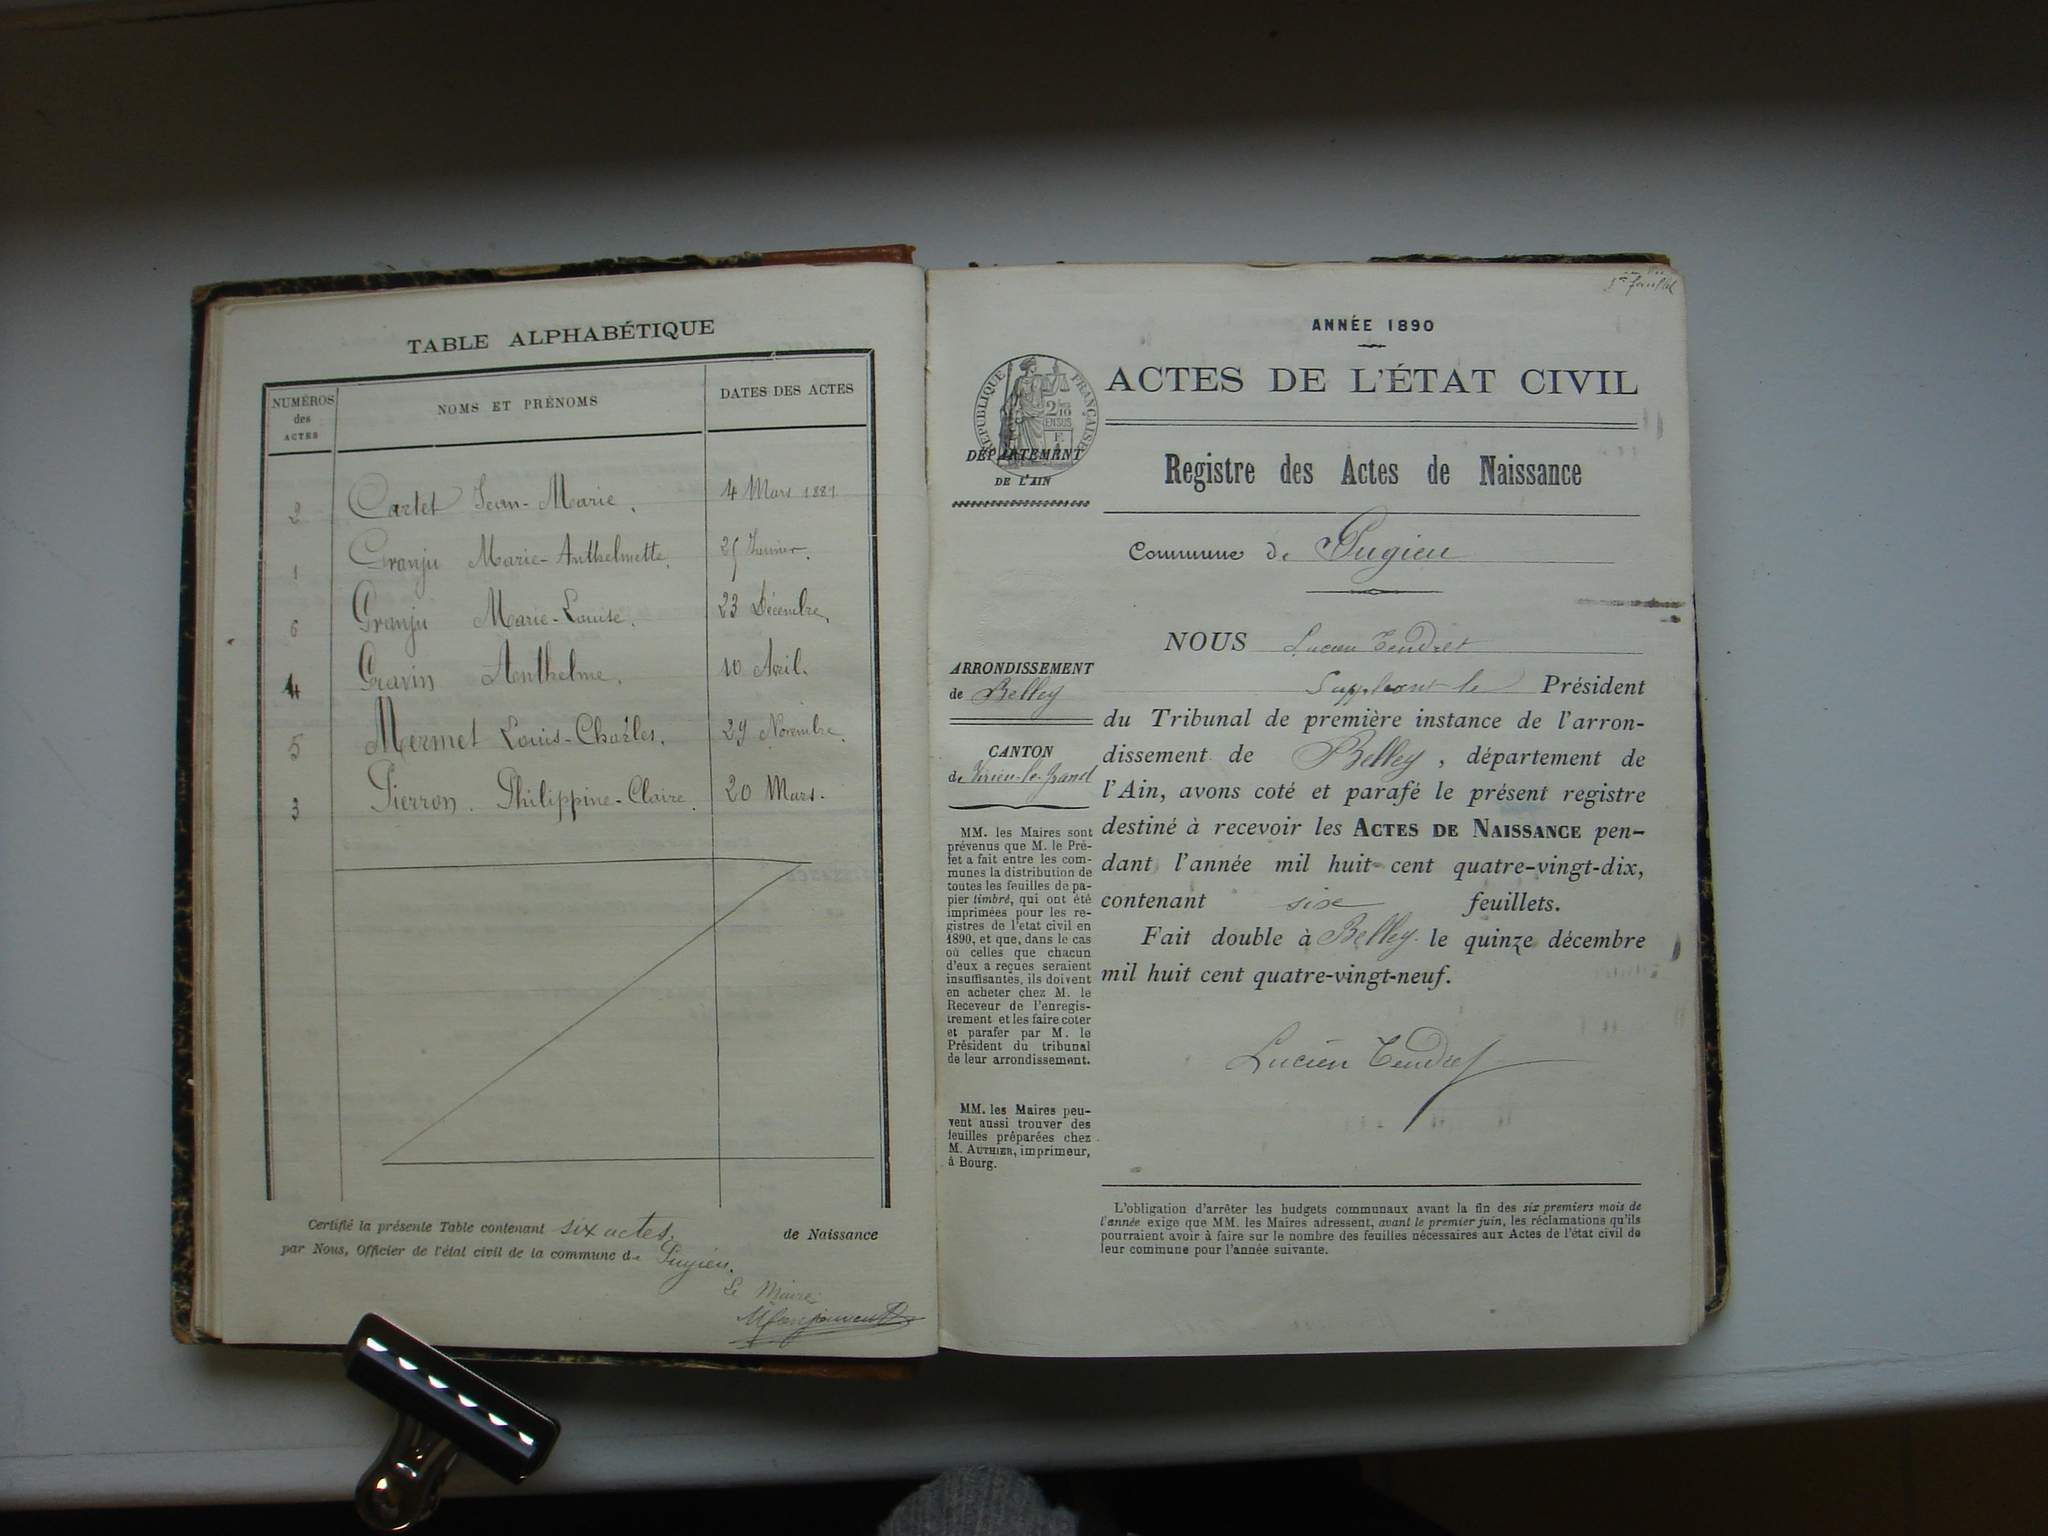 TABLE ALPHABÉTIQUE
NUMÉROS des ACTES
NOMS ET PRÉNOMS
DATES DES ACTES
2 Cartet Jean-Marie. 4 Mars 1889
1 Granju Marie-Anthelmette. 25 Janvier.
6 Granju Marie-Louise. 23 Décembre.
4 Gravin Anthelme. 10 Avril.
5 Mermet Louis-Charles. 29 Novembre.
3 Pierron. Philippine-Claire. 20 Mars.
Certifié la présente Table contenant six actes. de Naissance
par Nous, Officier de l'état civil de la commune de Pugieu.
Le Maire
1er feuillet
ANNÉE 1890
RÉPUBLIQUE FRANÇAISE
2/10 EN SUS
DÉPARTEMENT
DE L'AIN
ACTES DE L'ÉTAT CIVIL
Registre des Actes de Naissance
Commune de Pugieu
ARRONDISSEMENT
de Belley
CANTON
de Virieu-le-Grand
MM. les Maires sont
prévenus que M. le Pré-
fet a fait entre les com-
munes la distribution de
toutes les feuilles de pa-
pier timbré, qui ont été
imprimées pour les re-
gistres de l'état civil en
1890, et que, dans le cas
où celles que chacun
d'eux a reçues seraient
insuffisantes, ils doivent
en acheter chez M. le
Receveur de l'enregis-
trement et les faire coter
et parafer par M. le
Président du tribunal
de leur arrondissement.
MM. les Maires peu-
vent aussi trouver des
feuilles préparées chez
M. AUTHIER, imprimeur,
à Bourg.
NOUS Lucien Tendret
Suppléant le Président
du Tribunal de première instance de l'arron-
dissement de Belley, département de
l'Ain, avons coté et parafé le présent registre
destiné à recevoir les ACTES DE NAISSANCE pen-
dant l'année mil huit cent quatre-vingt-dix,
contenant six feuillets.
Fait double à Belley le quinze décembre
mil huit cent quatre-vingt-neuf.
Lucien Tendret
L'obligation d'arrêter les budgets communaux avant la fin des six premiers mois de
l'année exige que MM. les Maires adressent, avant le premier juin, les réclamations qu'ils
pourraient avoir à faire sur le nombre des feuilles nécessaires aux Actes de l'état civil de
leur commune pour l'année suivante.